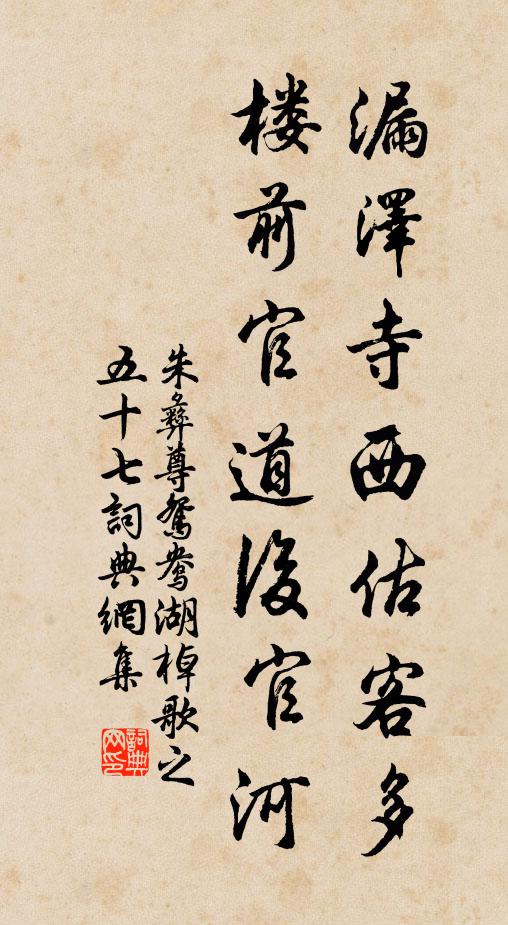 漏澤寺西估客多
楼前官道後官河
朱彝尊鸳鸯湖棹歌之
五十七詞典網集
詞典
网印